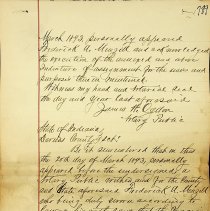 March 1893, personally appeared
Frederick A. Menzel and acknowledged
the execution of the annexed and above
indenture of assignment for the uses and
purposes therein mentioned.
Witness my hand and notarial seal
the day and year last aforesaid
James H.
Notary Public
State of Indiana,
County, ss
Be it remembered that on this
30th day of March 1893, personally
appeared before the undersigned a
Notary Public within and for the County
and State aforesaid Frederick A. Menzel
who being duly sworn according to